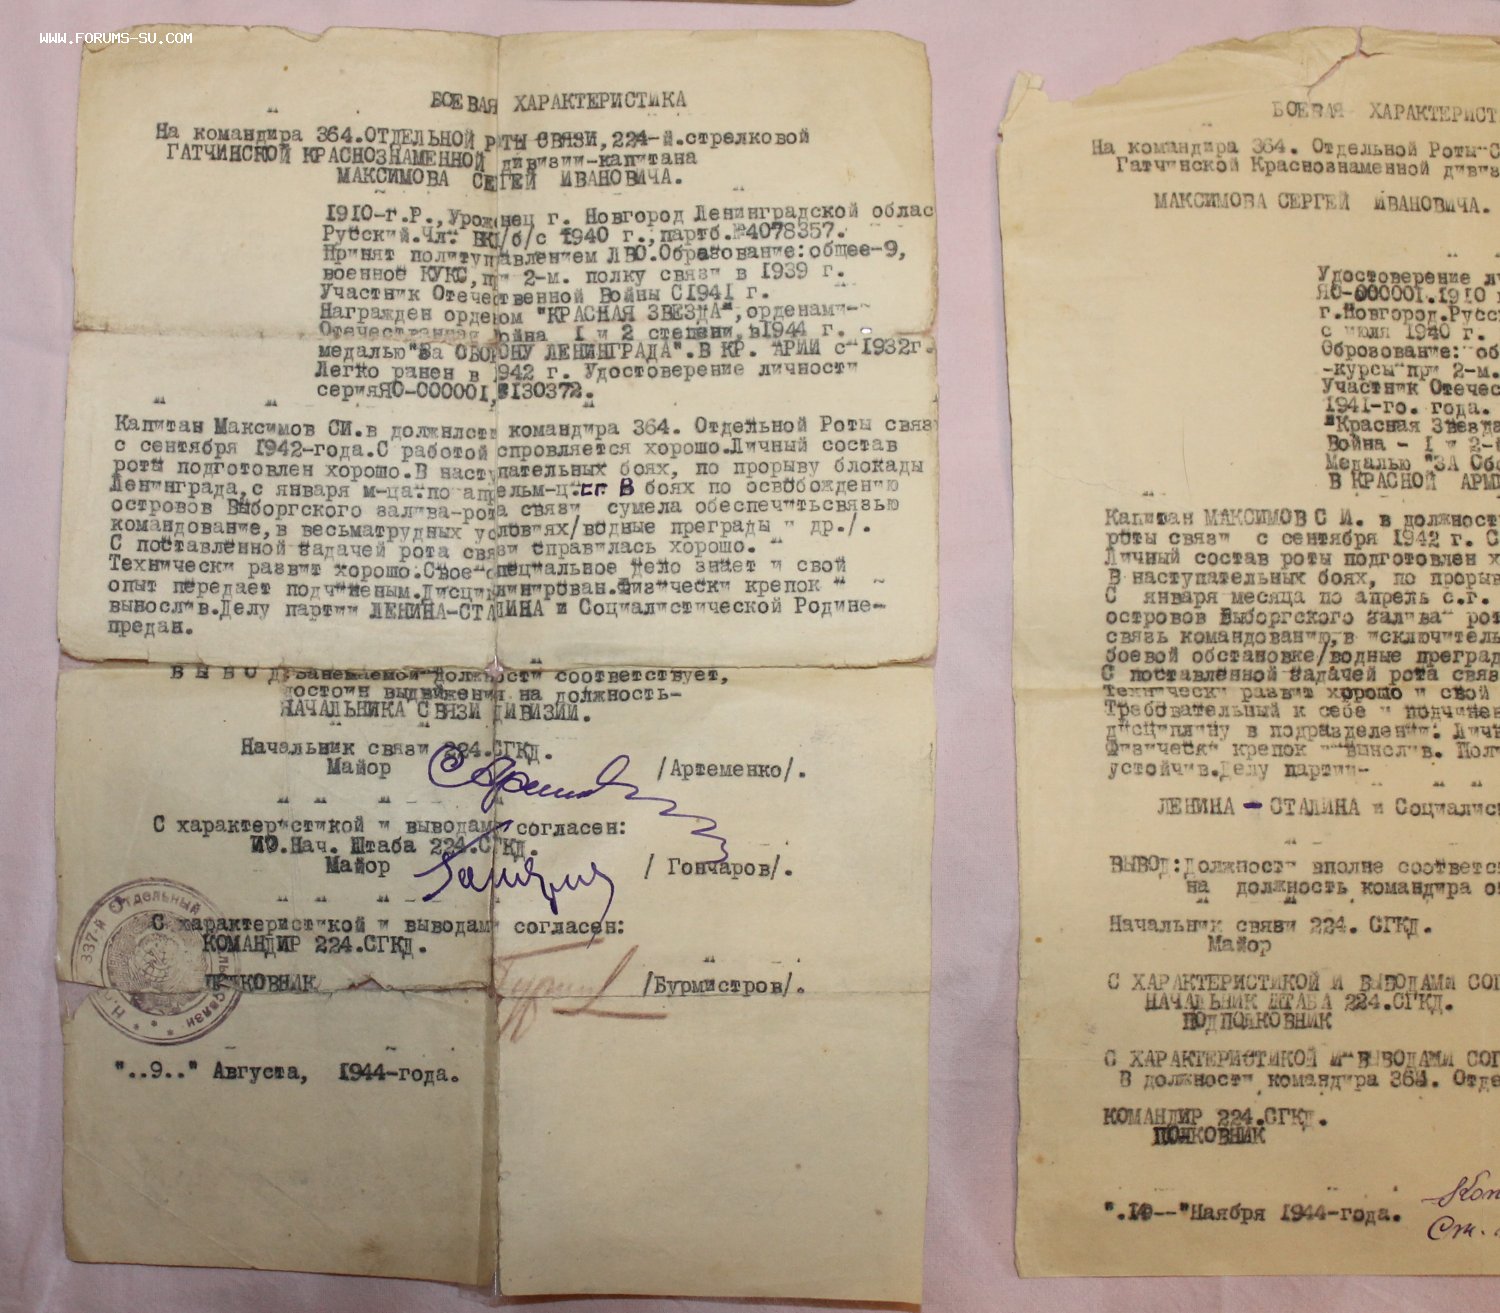 WWW.FORUMS-SU.COM
БОЕВАЯ ХАРАКТЕРИСТИКА
На командира 364.ОТДЕЛЬНОЙ РОТЫ СВЯЗИ,224-й.стрелковой
ГАТЧИНСКОЙ КРАСНОЗНАМЕННОЙ дивизии-капитана
МАКСИМОВА СЕРГЕЙ ИВАНОВИЧА.
1910-г.Р.,Уроженец г. Новгород Ленинградской облас
Русский.Чл. ВКП/б/с 1940 г.,партб.№4078357.
Принят политуправлением ЛВО.Образование:общее-9,
военное КУКС,при 2-м. полку связи в 1939 г.
Участник Отечественной Войны С1941 г.
Награжден орденом "КРАСНАЯ ЗВЕЗДА",орденами-
Отечественная война 1 и 2 степени,в1944 г.
медалью"За ОБОРОНУ ЛЕНИНГРАДА".В КР. АРМИИ с 1932г.
Легко ранен в 1942 г. Удостоверение личности
серияЯО-000001,№130372.
Капитан Максимов СИ.в должнлсти командира 364. Отдельной Роты связ
с сентября 1942-года.С работой спровляется хорошо.Личный состав
роты подготовлен хорошо.В наступательных боях, по прорыву блокады
Ленинграда,с января м-ца.по апрельм-ц.сг. В боях по освобождению
островов Выборгского залива-рота связи сумела обеспечитьсвязью
командование,в весьматрудных условиях/водные преграды и др./.
С поставленной задачей рота связи справилась хорошо.
Технически развит хорошо.Свое специальное дело знает и свой
опыт передает подчиненым.Дисциплинирован.Физически крепок и
вынослив.Делу партии ЛЕНИНА-СТАЛИНА и Социалистической Родине-
предан.
В Ы В О Д:Занемаемой должности соответствует,
достоин выдвижения на должность-
НАЧАЛЬНИКА СВЯЗИ ДИВИЗИИ.
Начальник связи 224.СГКД.
Майор /Артеменко/.
С характеристикой и выводами согласен:
ИО.Нач. Штаба 224.СГКД.
Майор / Гончаров/.
С характеристикой и выводами согласен:
КОМАНДИР 224.СГКД.
ПОЛКОВНИК /Бурмистров/.
337-й Отдельный
связи
"..9.." Августа, 1944-года.
БОЕВАЯ ХАРАКТЕРИСТ
На командира 364. Отдельной Роты С
Гатчинской Краснознаменной дивиз
МАКСИМОВА СЕРГЕЙ ИВАНОВИЧА.
Удостоверение ли
ЯО-000001.1910
г.Новгород.Русс
с июля 1940 г.
Оброзование: об
-курсы при 2-м.
Участник Отечес
1941-го. года.
"Красная Звезда
Война - 1 и 2-
Медалью "ЗА Обо
В КРАСНОЙ АРМИ
Капитан МАКСИМОВ С И. в должност
роты связи с сентября 1942 г. С
Личный состав роты подготовлен х
В наступательных боях, по прорыв
С января месяца по апрель с.г.
островов Выборгского залива рот
связь командованию,в исключитель
боевой обстановке/водные преград
С поставленной задачей рота связ
Технически развит хорошо и свой
Требовательный к себе и подчинен
дисциплину в подразделении. Личн
Физически крепок и вынслив. Пол
устойчив.Делу партии-
ЛЕНИНА - СТАЛИНА и Социалис
ВЫВОД:Должности вполне соответс
на должность командира о
Начальник связи 224. СГКД.
Майор
С ХАРАКТЕРИСТИКОЙ И ВЫВОДАМИ СОГ
НАЧАЛЬНИК ШТАБА 224.СГКД.
ПОДПОЛКОВНИК
С ХАРАКТЕРИСТИКОЙ И ВЫВОДАМИ СОГ
В должности командира 364. Отде
КОМАНДИР 224.СГКД.
ПОЛКОВНИК
".10--"Наября 1944-года.
Коп
Ст.